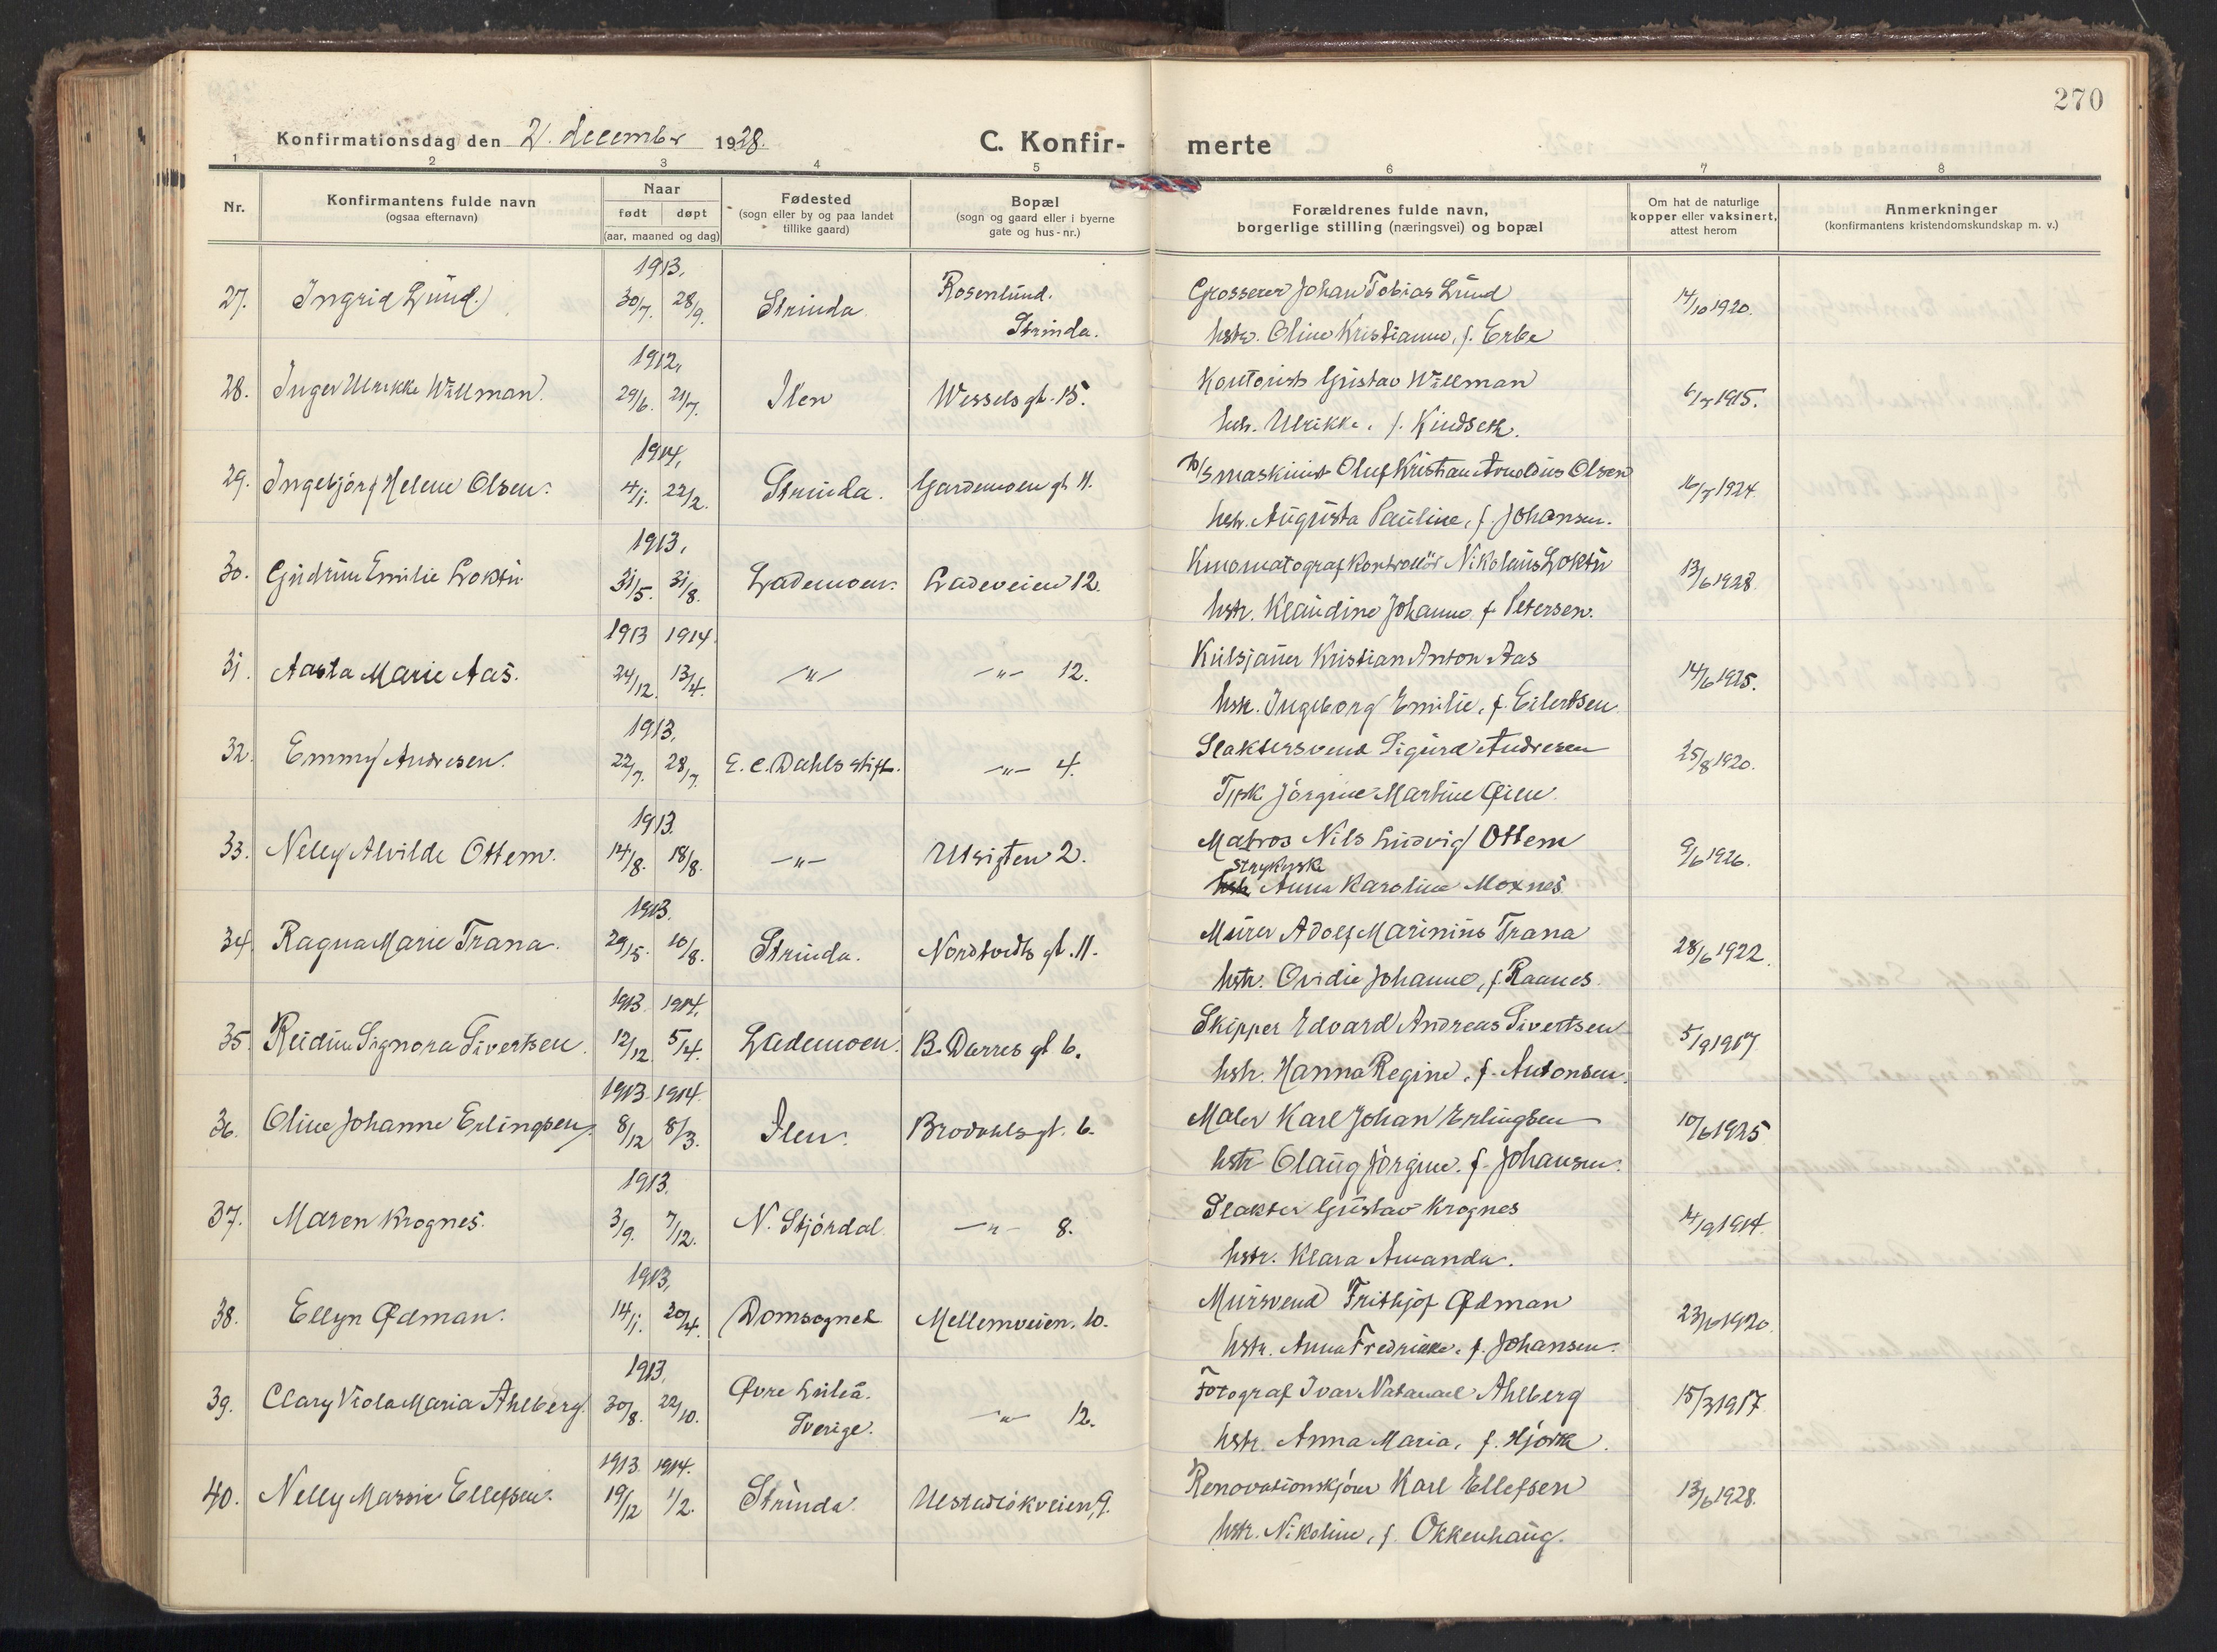 270
Konfirmationsdag den 2. december 1928.
C. Konfir- merte
1 2 3 4 5 6 7 8
Nr.
Konfirmantens fulde navn
(ogsaa efternavn)
Naar
født døpt
(aar, maaned og dag)
Fødested
(sogn eller by og paa landet
tillike gaard)
Bopæl
(sogn og gaard eller i byerne
gate og hus-nr.)
Forældrenes fulde navn,
borgerlige stilling (næringsvei) og bopæl
Om hat de naturlige
kopper eller vaksinert,
attest herom
Anmerkninger
(konfirmantens kristendomskundskap m. v.)
1913,
27. Ingrid Lund. 30/7. 28/9. Strinda. Rosenlund. Strinda. Grosserer Johan Tobias Lund 14/10 1920.
hstr. Oline Kristianne, f. Erbe
1912,
28. Inger Ulrikke Willman. 29/6. 21/7. Ilen Wessels gt. 15. Kontorist Gustav Willman 6/7 1915.
hstr. Ulrikke, f. Kindseth.
1914,
29. Ingebjörg Helene Olsen. 4/1. 22/2. Strinda. Gardemoen gt. 11. D/S maskinist Oluf Kristian Arnoldus Olsen 16/7 1924.
hstr. Augusta Pauline, f. Johansen.
1913,
30. Gudrun Emilie Loktu 31/5. 31/8. Lademoen. Ladeveien 12. Kinomatografkontrollör Nikolaus Loktu 13/6 1928.
hstr. Klaudine Johanne f. Petersen.
1913 1914.
31. Aasta Marie Aas. 24/12. 13/4. —"— —"— 12. Kulsjauer Kristian Anton Aas 14/6 1925.
hstr. Ingeborg Emilie, f. Eilertsen
1913,
32. Emmy Andresen. 22/7. 28/7. E. C. Dahls stift. —"— 4. Slaktersvend Sigurd Andresen 25/8 1920.
Tjpk Jörgine Martine Øien.
1913.
33. Nelly Alvilde Ottem. 14/8. 18/8. —"— Utsigten 2. Matros Nils Ludvig Ottem 9/6 1926.
Strykerske
hstr. Anna Karoline Moxnes
1913.
34. Ragna Marie Trana. 29/5. 10/8. Strinda. Nordtvedts gt. 11. Murer Adolf Marinius Trana 28/6 1922.
hstr. Ovidie Johanne, f. Raanes.
1913. 1914.
35. Reidun Signora Sivertsen. 12/12 5/4. Lademoen. B. Darres gt 6. Skipper Edvard Andreas Sivertsen 5/9 1917
hstr. Hanna Regine, f. Antonsen.
1913. 1914.
36. Oline Johanne Erlingsen. 8/12 8/3. Ilen. Brodahls gt. 6. Maler Karl Johan Erlingsen 10/6 1925
hstr Olaug Jörgine. f. Johansen.
1913.
37. Maren Krognes. 3/9. 7/12. N. Stjördal —"— 8. Slakter Gustav Krognes 14/9 1914
hstr. Klara Amanda.
1913,
38. Ellyn Ødman. 14/1. 20/4. Domsognet Mellemveien. 10. Mursvend Frithjof Ødman 23/10 1920.
hstr. Anna Fredrikke. f. Johansen.
1913,
39. Clary Viola Maria Ahlberg. 30/8. 22/10. Øvre Luleå. Sverige. —"— 12. Fotograf Ivar Natanael Ahlberg 15/3 1917
hstr. Anna Maria, f. Hjorth.
1913. 1914.
40. Nelly Massie Ellefsen. 19/12 1/2. Strinda. Ulstadlökveien, 9. Renovationskjörer Karl Ellefsen 13/6 1928.
hstr. Nikoline, f. Okkenhaug.